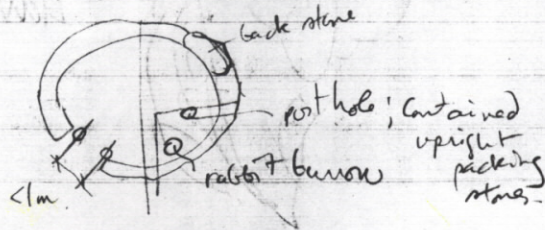 back stone
post hole; contained
upright
packing
stones.
rabbit burrow
<1m.